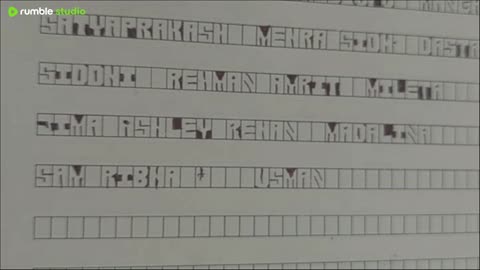 rumble studio
SATYAPRAKASH MEHRA SIDH DASTA
SIDDHI REHMAN AMRIT MILETA
JIMA ASHLEY REHAN MADALINA
SAM RIBHA USMAN